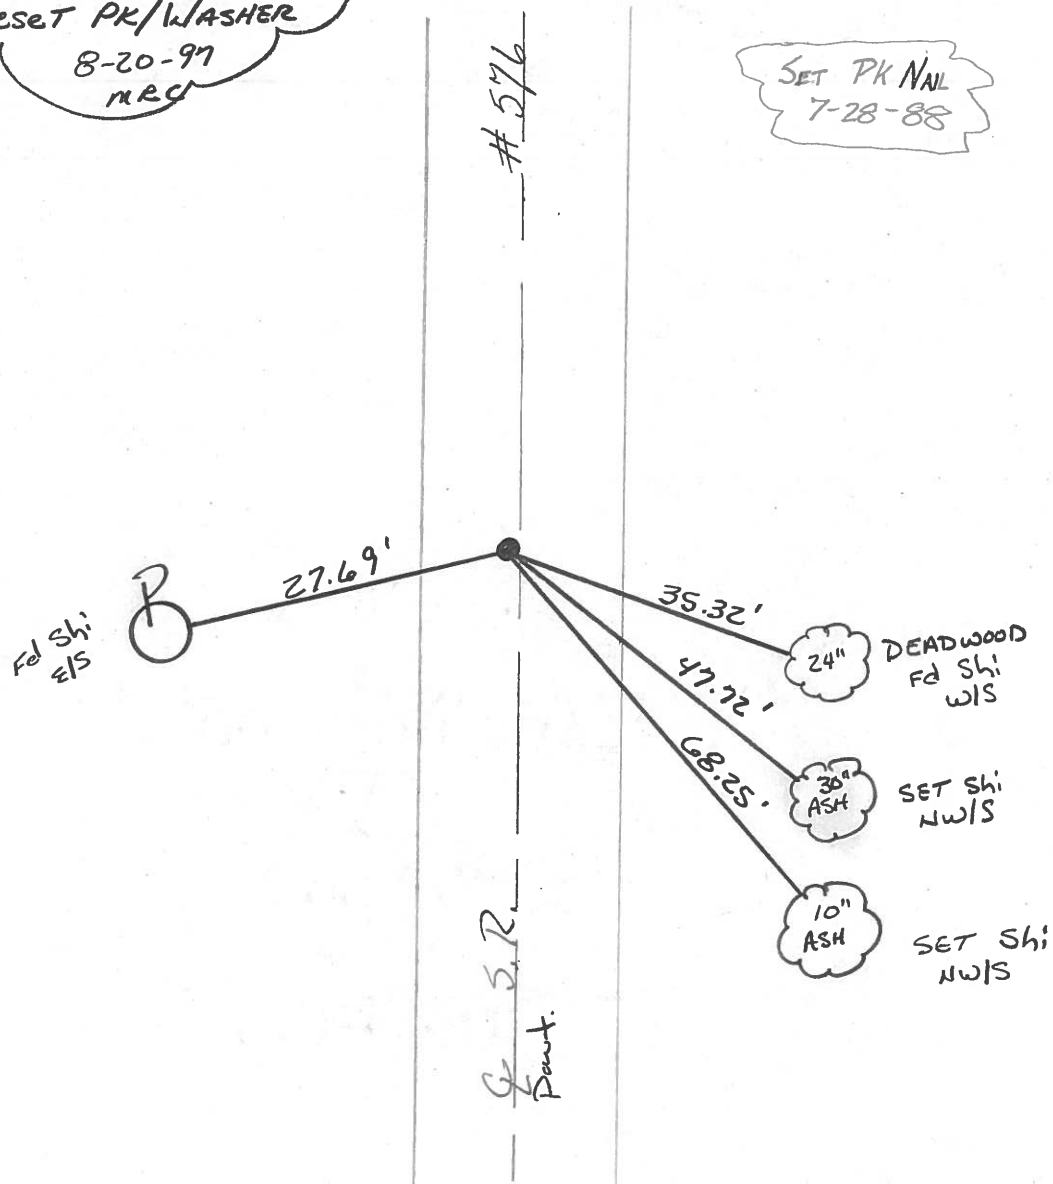 ESET PK/WASHER
8-20-97
MRC
# 576
SET PK NAIL
7-28-88
27.69'
P
Fd Shi
E/S
35.32'
24"
DEADWOOD
Fd Shi
W/S
47.72'
30"
ASH
SET Shi
NW/S
68.25'
10"
ASH
SET Shi
NW/S
℄ S.R.
Pavmt.